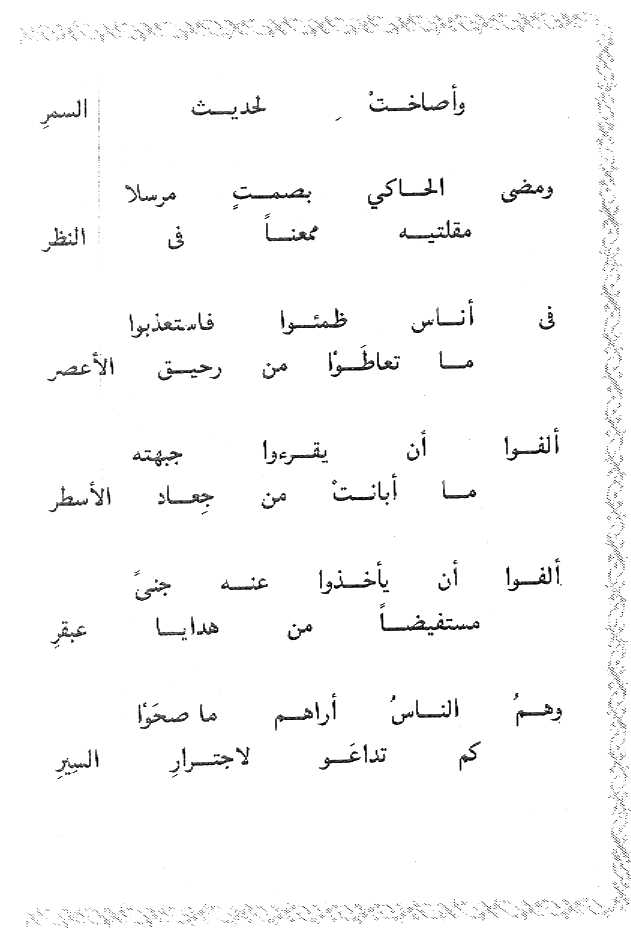 وأصاختْ لحديث السمرِ
ومضى الحاكي بصمتٍ مرسلا
مقلتيه ممعناً فى النظر
فى أناس ظمئوا فاستعذبوا
ما تعاطَوْا من رحيق الأعصر
ألفوا أن يقرءوا جبهته
ما أبانتْ من جِعاد الأسطر
ألفوا أن يأخذوا عنه جنىً
مستفيضاً من هدايا عبقرِ
وهمُ الناسُ أراهم ما صحَوْا
كم تداعَو لاجترارِ السِيرِ